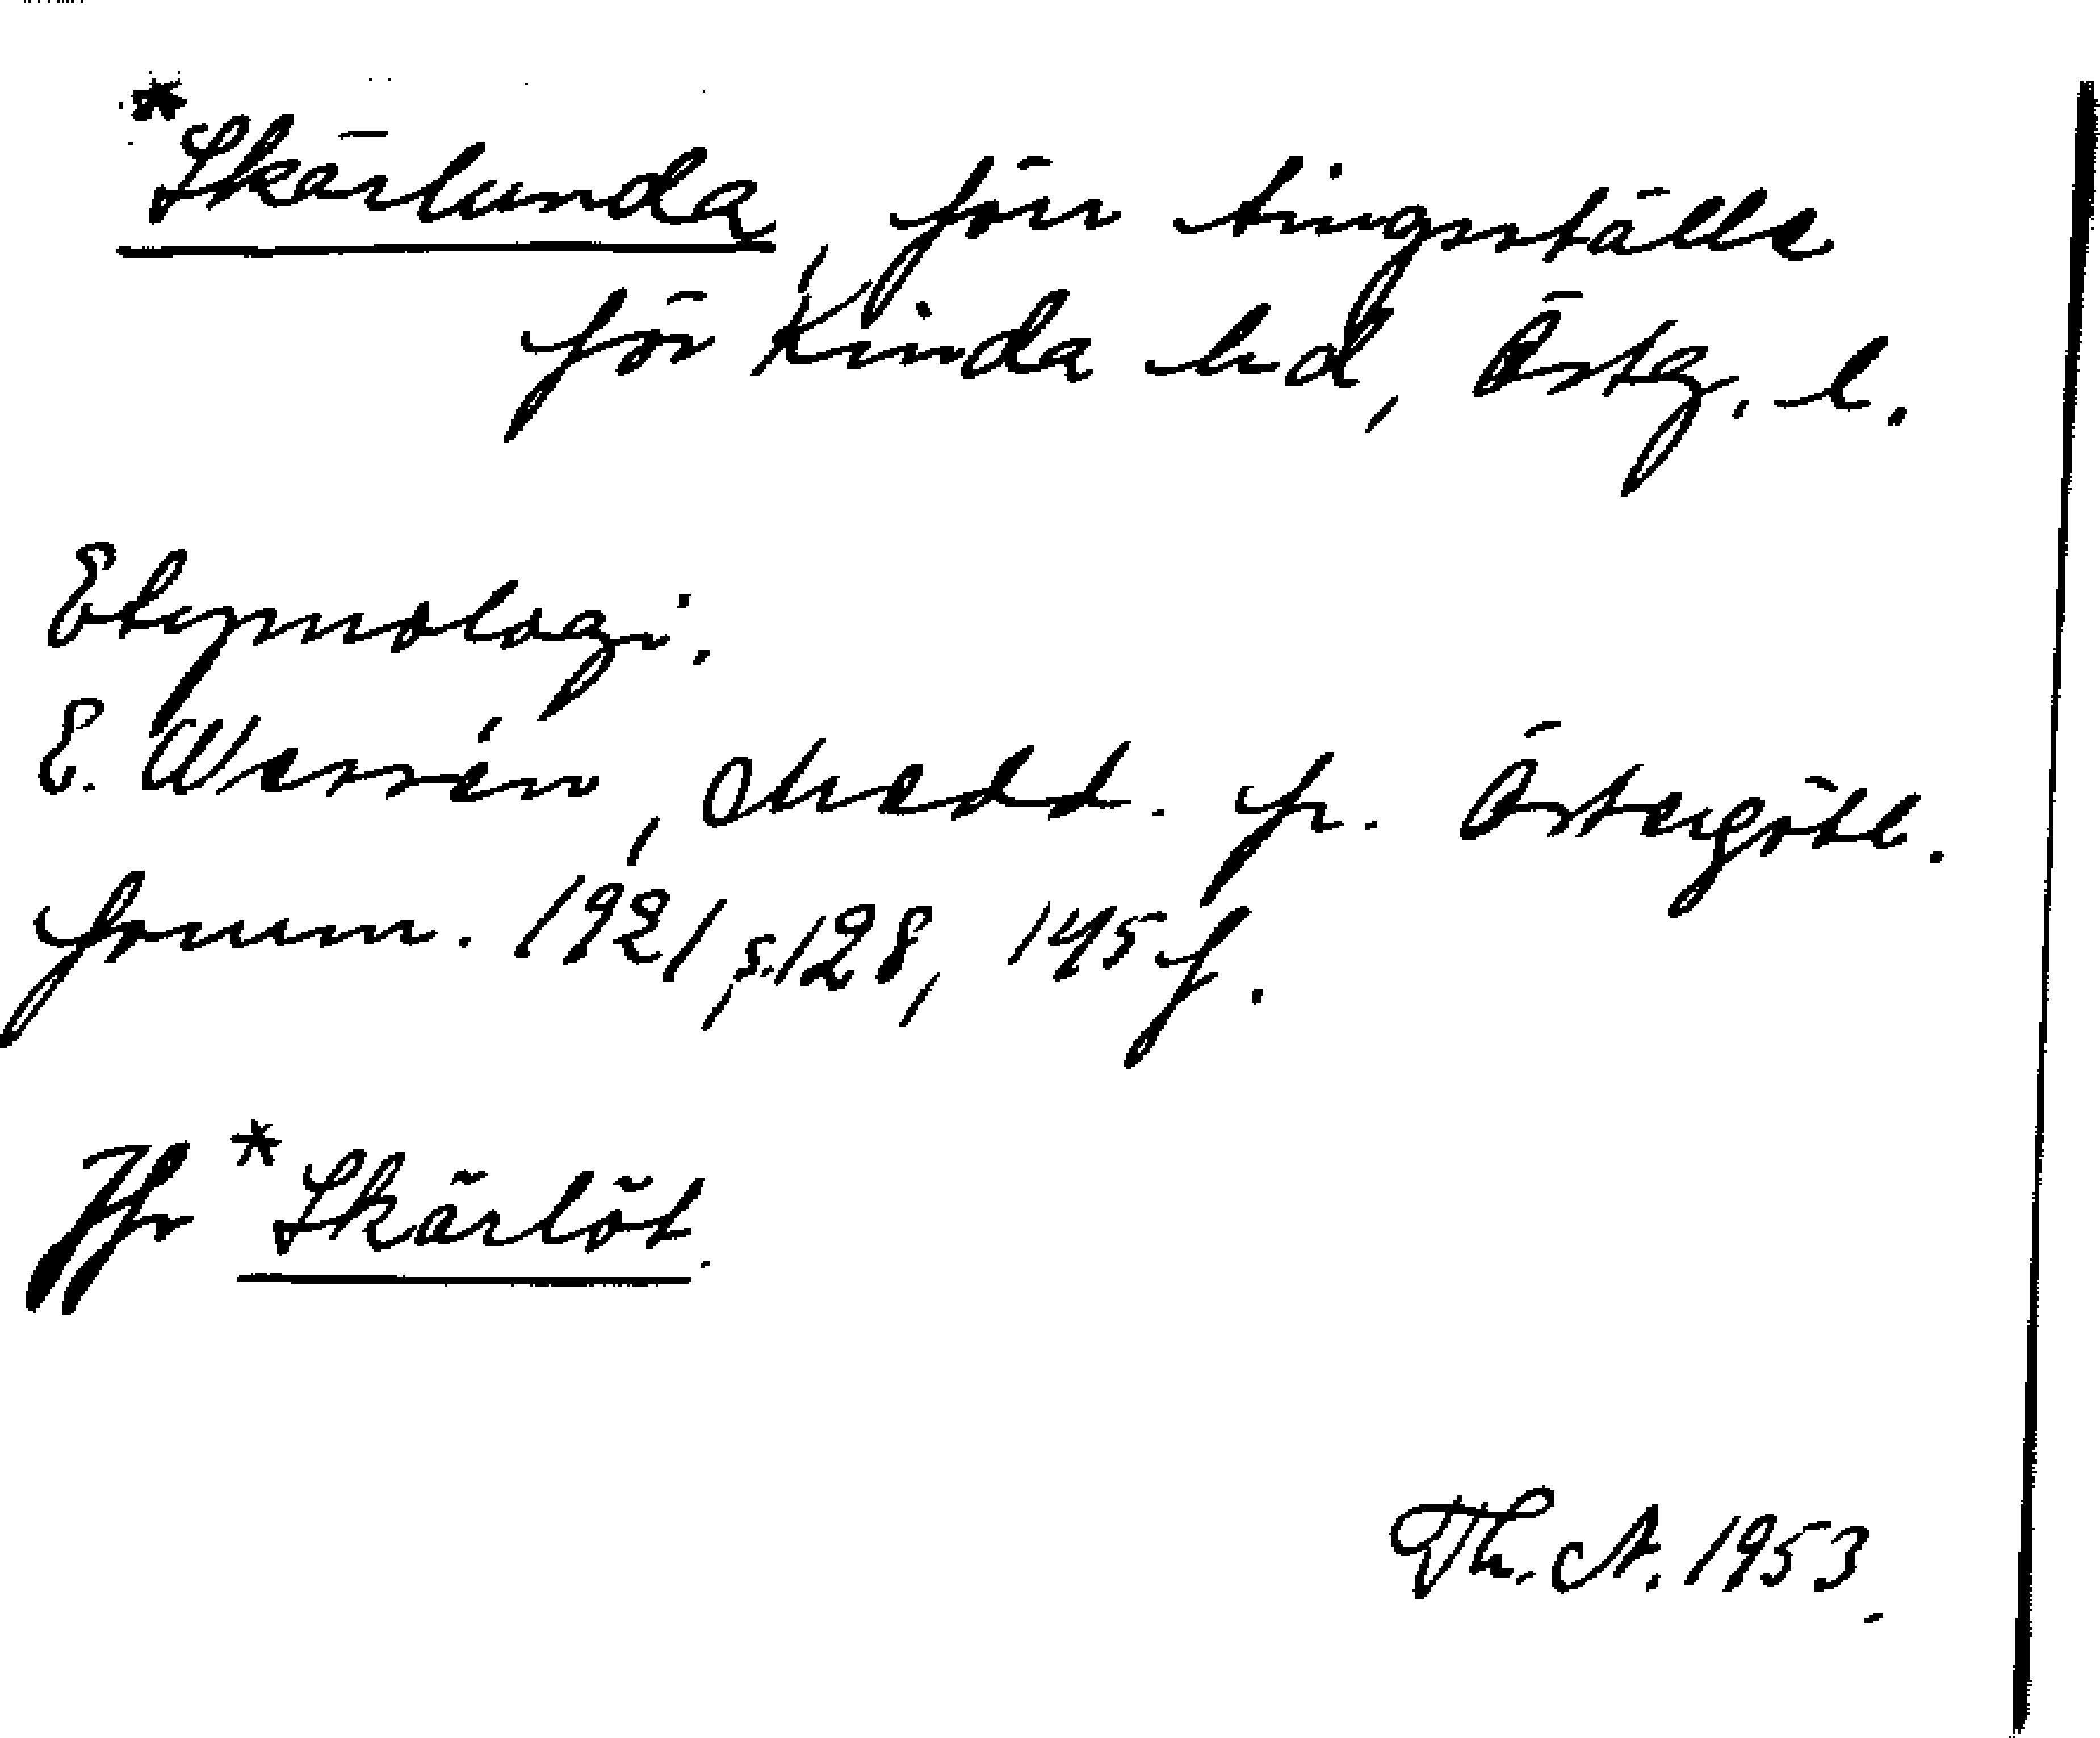 *Skärlunda, förr tingsställe
för Kinda hd, Östg. l.
Etymologi.
E. Wessén, Medd. fr. Östergötl.
fornm. 1921, s. 128, 145 f.
Jfr *Skärlöt.
Th. A. 1953.